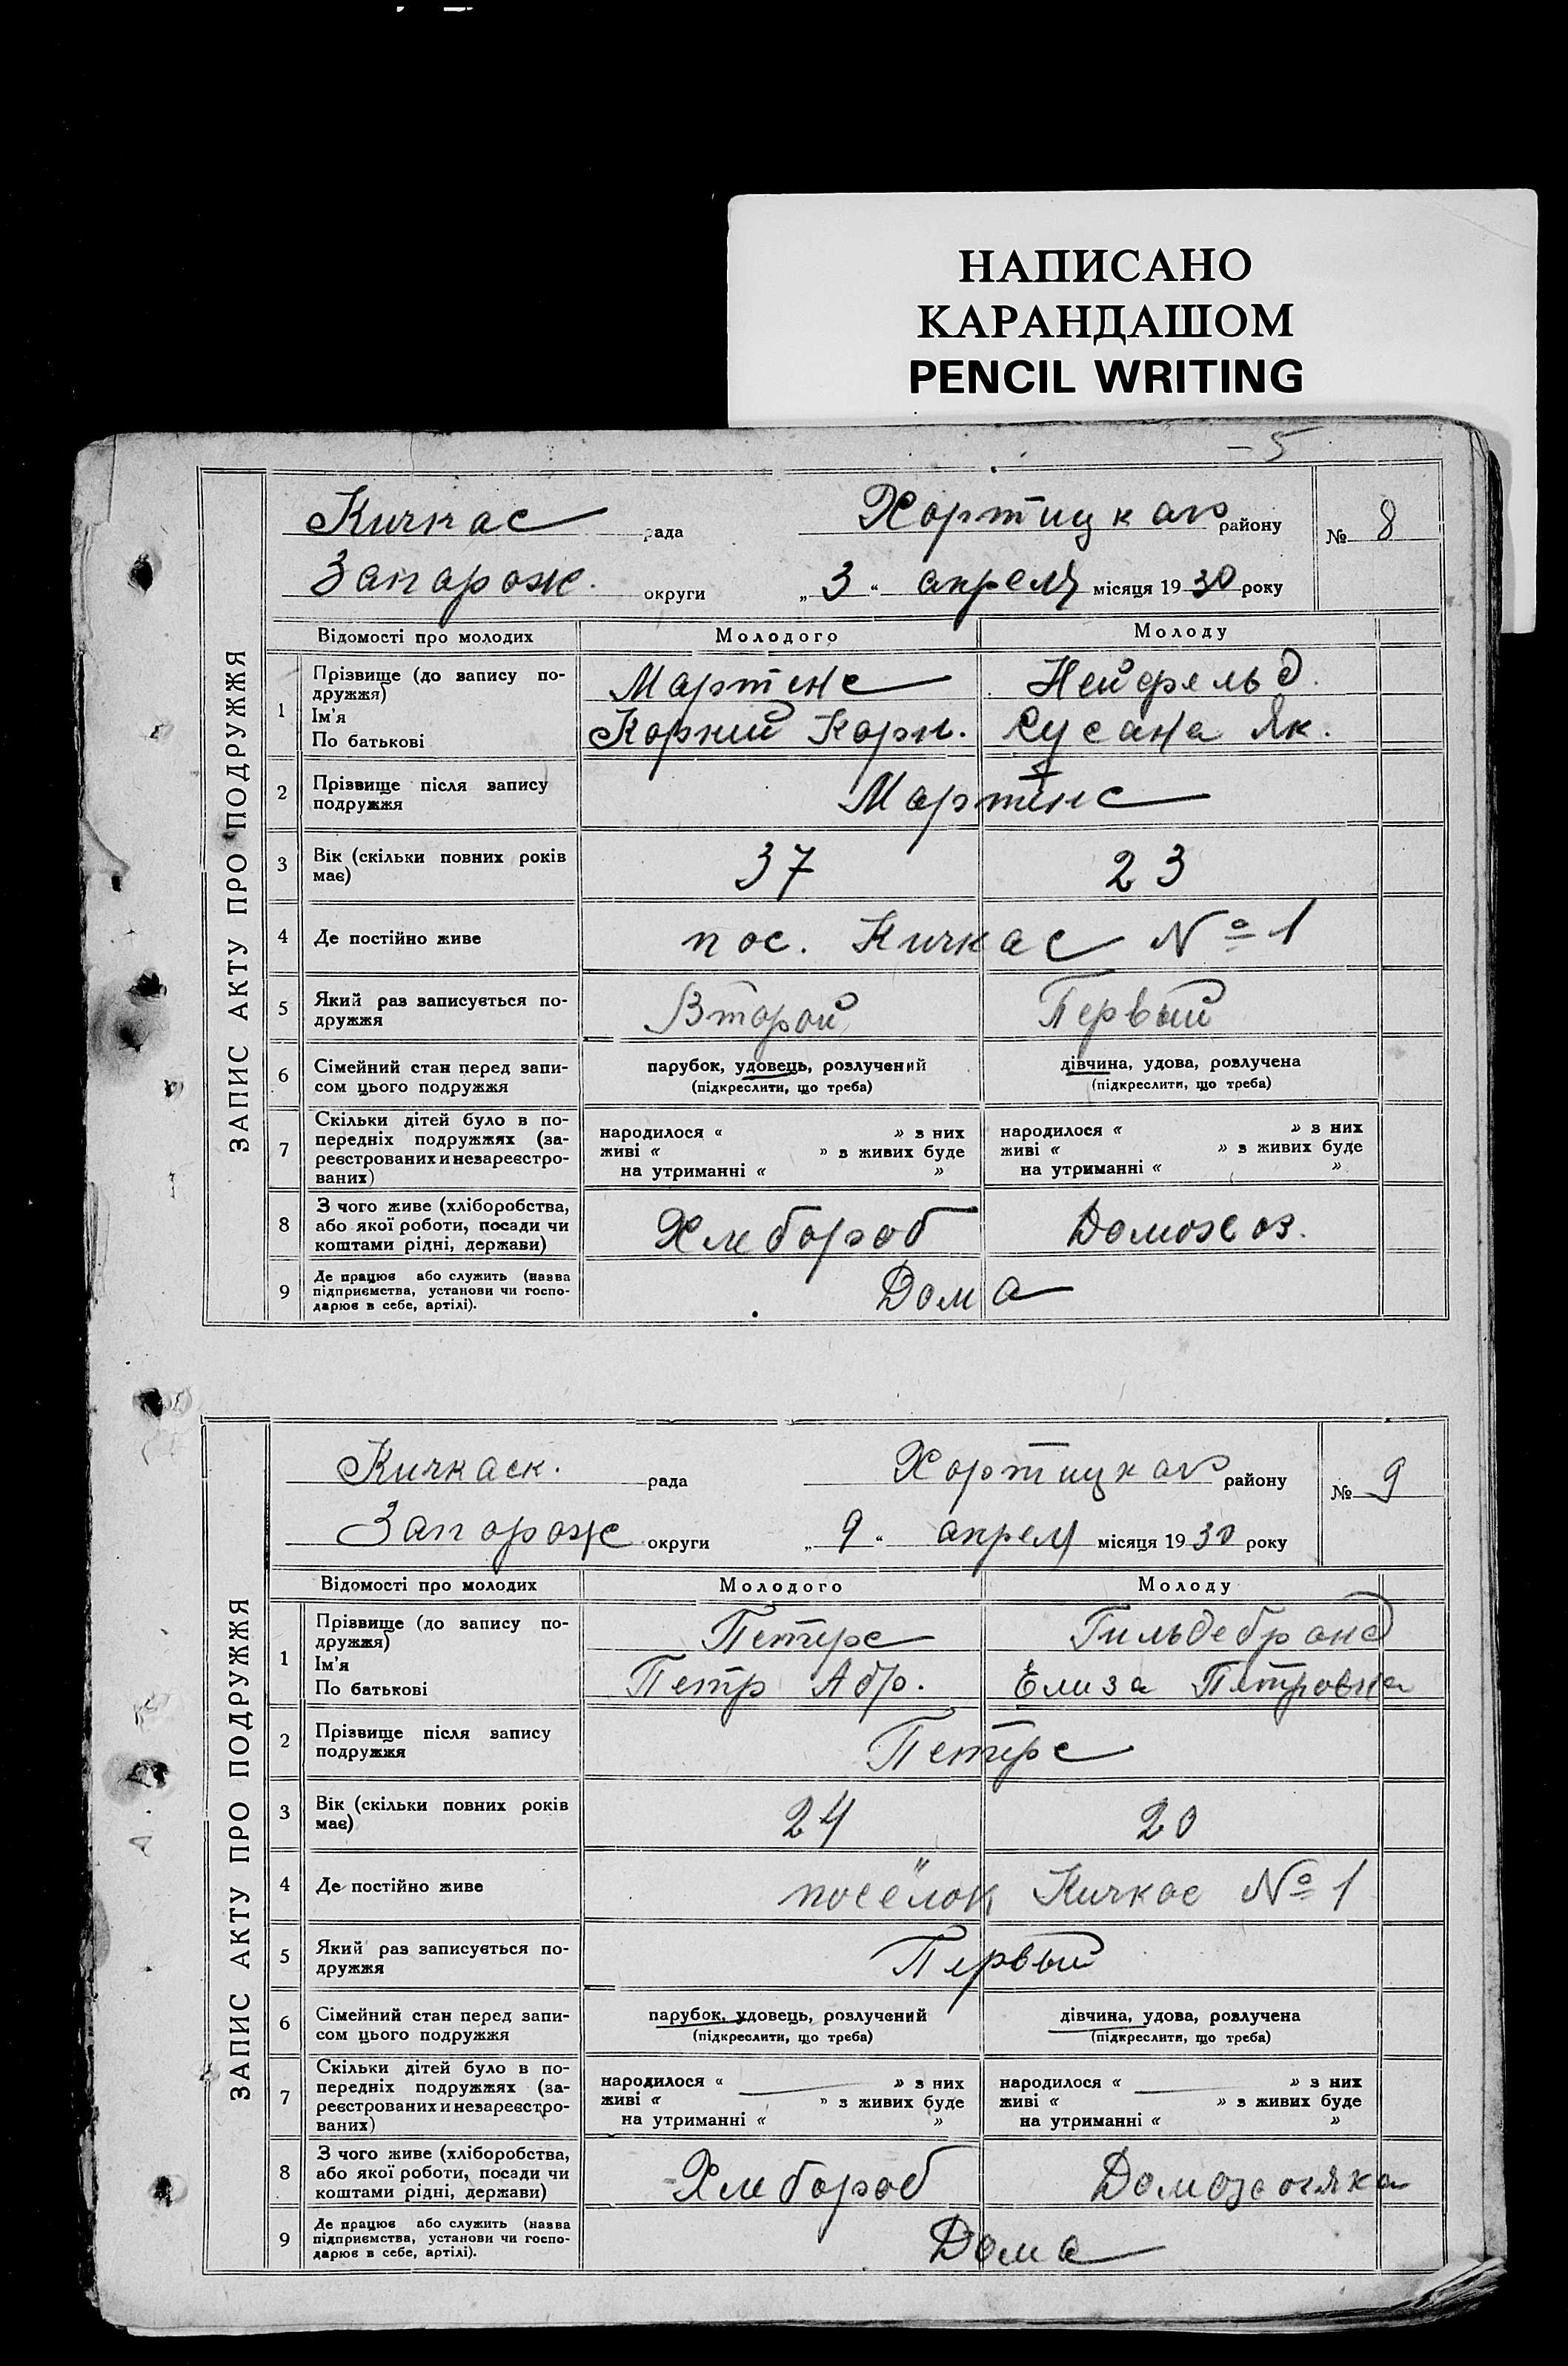 НАПИСАНО
КАРАНДАШОМ
PENCIL WRITING
– 5
ЗАПИС АКТУ ПРО ПОДРУЖЖЯ
Кичкас рада Хортицкого району № 8
Запорож. округи „ 3 “ апреля місяця 1930 року
Відомості про молодих Молодого Молоду
1 Прізвище (до запису по-
дружжя) Мартенс Нейфельд.
Ім'я
По батькові Корний Корн. Сусана Як.
2 Прізвище після запису
подружжя Мартенс
3 Вік (скільки повних років
має) 37 23
4 Де постійно живе пос. Кичкас № 1
5 Який раз записується по-
дружжя Второй Первый
6 Сімейний стан перед запи-
сом цього подружжя парубок, удовець, розлучений дівчина, удова, розлучена
(підкреслити, що треба) (підкреслити, що треба)
7 Скільки дітей було в по-
передніх подружжях (за-
реєстрованих и незареєстро-
ваних)
народилося “ » з них народилося “ » з них
живі “ » з живих буде живі “ » з живих буде
на утриманні “ » на утриманні “ »
8 З чого живе (хліборобства,
або якої роботи, посади чи
коштами рідні, держави) Хлебороб Домохоз.
9 Де працює або служить (назва
підприємства, установи чи госпо-
дарює в себе, артілі). Дома
ЗАПИС АКТУ ПРО ПОДРУЖЖЯ
Кичкаск. рада Хортицкого району № 9
Запорож округи „ 9 “ апреля місяця 1930 року
Відомості про молодих Молодого Молоду
1 Прізвище (до запису по-
дружжя) Петерс Гильдебранд
Ім'я
По батькові Петр Абр. Елиза Петровна
2 Прізвище після запису
подружжя Петерс
3 Вік (скільки повних років
має) 24 20
4 Де постійно живе посёлок Кичкас № 1
5 Який раз записується по-
дружжя Первый
6 Сімейний стан перед запи-
сом цього подружжя парубок, удовець, розлучений дівчина, удова, розлучена
(підкреслити, що треба) (підкреслити, що треба)
7 Скільки дітей було в по-
передніх подружжях (за-
реєстрованих и незареєстро-
ваних)
народилося “ — » з них народилося “ — » з них
живі “ » з живих буде живі “ » з живих буде
на утриманні “ » на утриманні “ »
8 З чого живе (хліборобства,
або якої роботи, посади чи
коштами рідні, держави) Хлебороб Домохозяйка
9 Де працює або служить (назва
підприємства, установи чи госпо-
дарює в себе, артілі). Дома